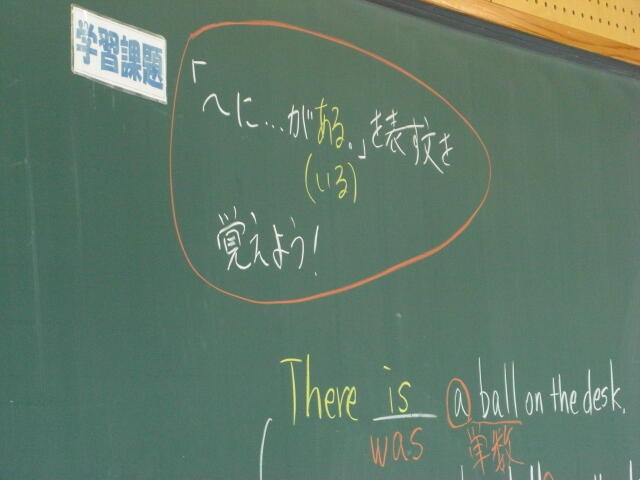 学習課題
「～に…がある。」を表す文を
(いる)
覚えよう!
There is a ball on the desk.
was 単数